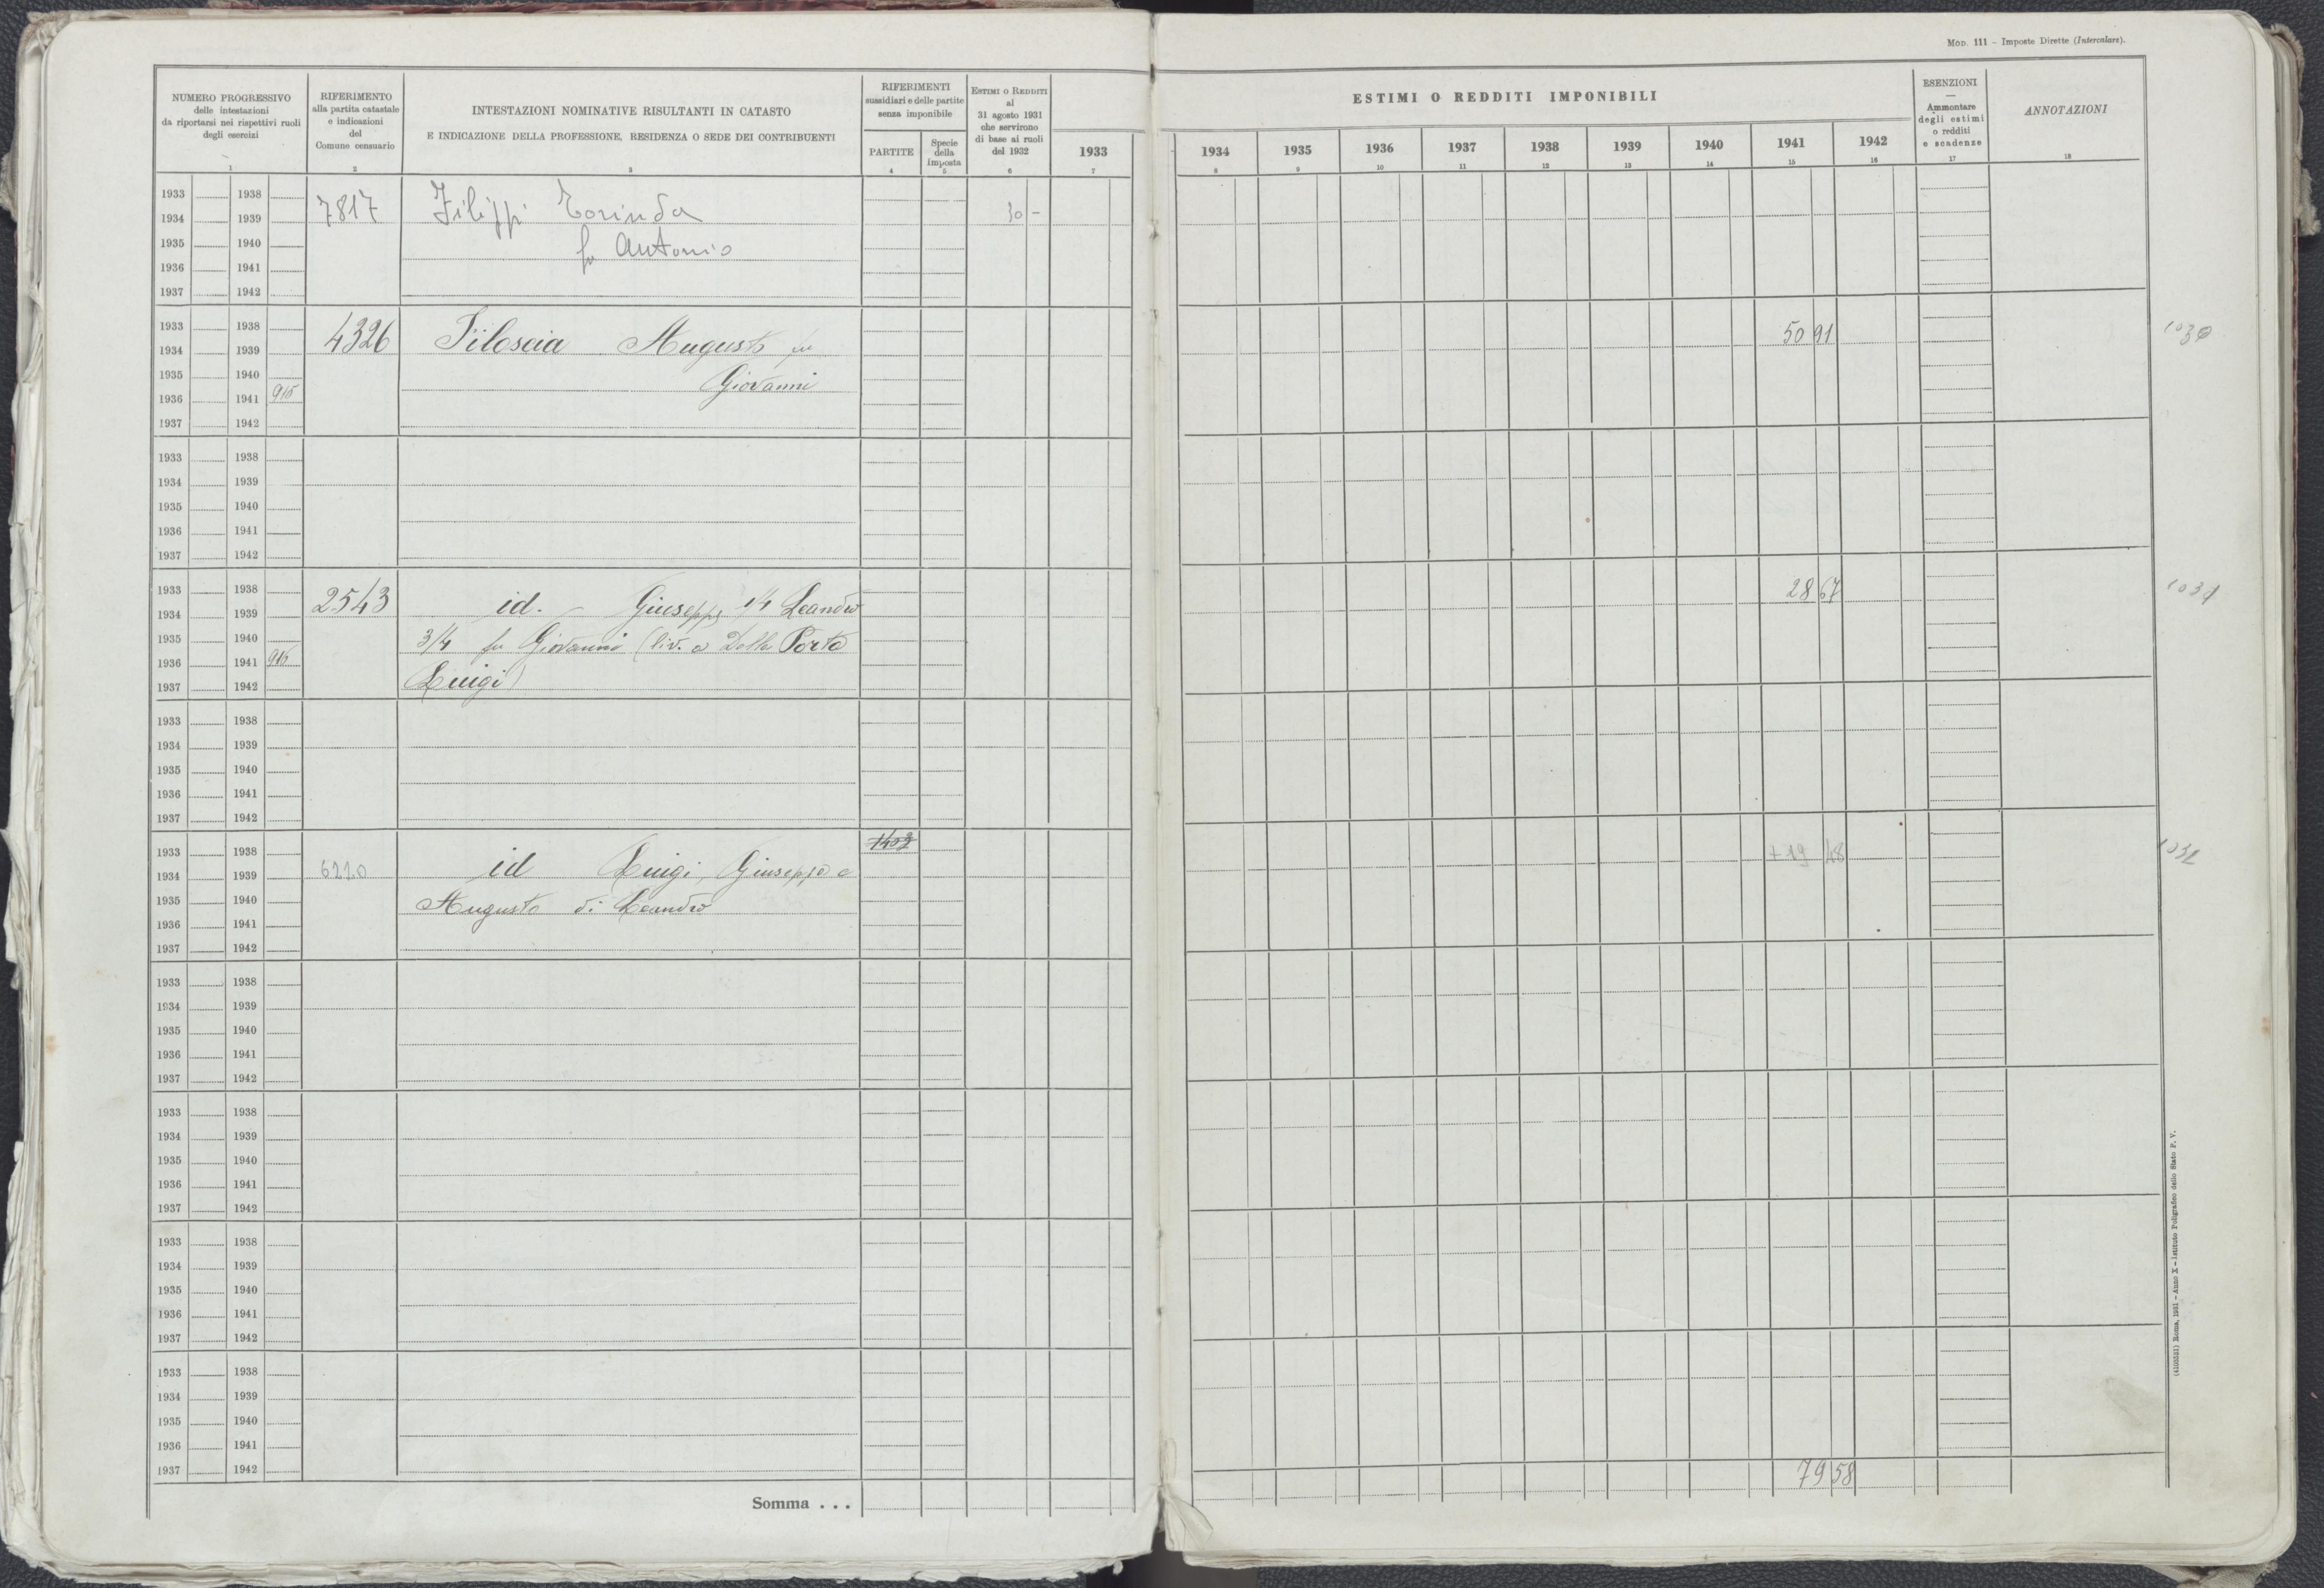 MOD. 111 – Imposte Dirette (Intercalare).
NUMERO PROGRESSIVO
delle intestazioni
da riportarsi nei rispettivi ruoli
degli esercizi
1
RIFERIMENTO
alla partita catastale
e indicazioni
del
Comune censuario
2
INTESTAZIONI NOMINATIVE RISULTANTI IN CATASTO
E INDICAZIONE DELLA PROFESSIONE, RESIDENZA O SEDE DEI CONTRIBUENTI
3
RIFERIMENTI
sussidiari e delle partite
senza imponibile
PARTITE
4
Specie
della
Imposta
5
ESTIMI O REDDITI
al
31 agosto 1931
che servirono
di base ai ruoli
del 1932
6
ESTIMI O REDDITI IMPONIBILI
1933 1934 1935 1936 1937 1938 1939 1940 1941 1942
7 8 9 10 11 12 13 14 15 16
ESENZIONI
—
Ammontare
degli estimi
o redditi
e scadenze
17
ANNOTAZIONI
18
1933 1938
1934 1939 7817 Filippi 30 –
1935 1940 fu Antonio
1936 1941
1937 1942
1933 1938
1934 1939 4326 Filoscia Augusto fu 50 91 1030
1935 1940 Giovanni
1936 1941 915
1937 1942
1933 1938
1934 1939
1935 1940
1936 1941
1937 1942
1933 1938
1934 1939 2543 id. – Giuseppe 1/4 Leandro 28 67 1031
1935 1940 3/4 fu Giovanni (liv. a Della Porta
1936 1941 916
1937 1942 Luigi)
1933 1938
1934 1939
1935 1940
1936 1941
1937 1942
1933 1938 1402
1934 1939 6220 id Luigi, Giuseppe e + 19 1032
1935 1940 Augusto di Leandro
1936 1941
1937 1942
1933 1938
1934 1939
1935 1940
1936 1941
1937 1942
1933 1938
1934 1939
1935 1940
1936 1941
1937 1942
1933 1938
1934 1939
1935 1940
1936 1941
1937 1942
1933 1938
1934 1939
1935 1940
1936 1941
1937 1942
Somma . . . 79 58
(4103531) Roma, 1931 – Anno X – Istituto Poligrafico dello Stato P. V.